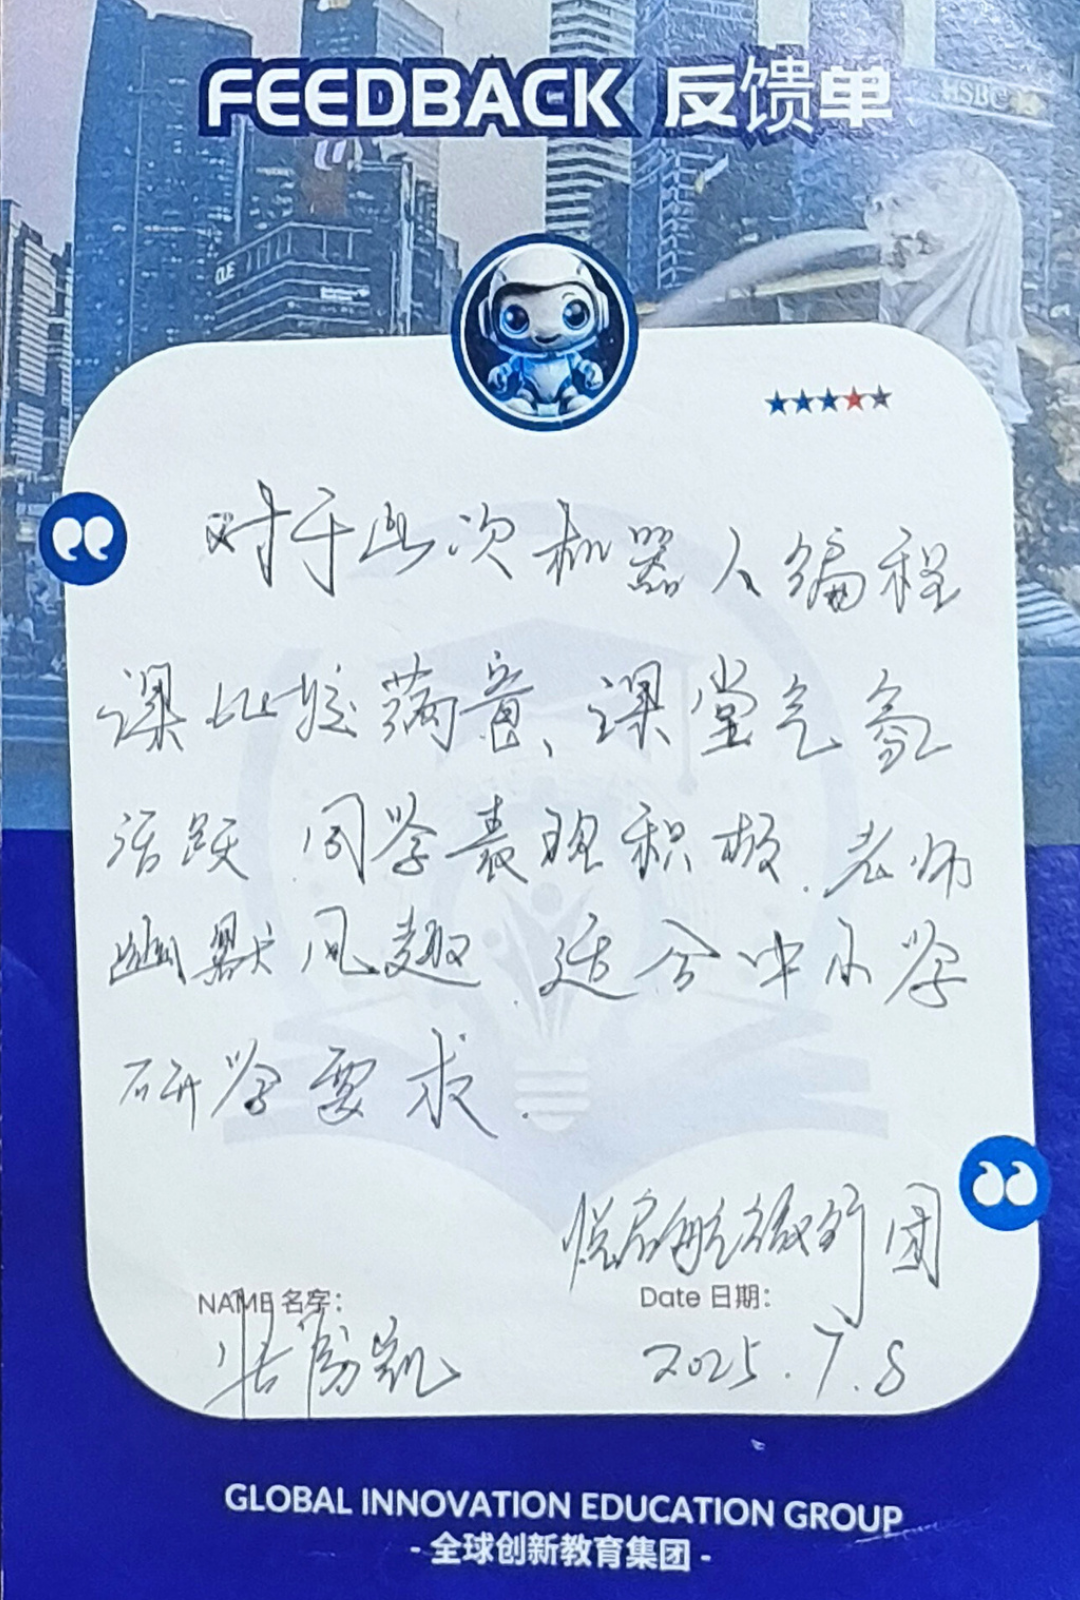 FEEDBACK 反馈单
HSBC
CLE
对于此次机器人编程
课比较满意、课堂气氛
活跃 同学表现积极.老师
幽默风趣.适合中小学
研学要求.
悦启航 行团
NAME 名字：
Date 日期：
凯
2025.7.8
GLOBAL INNOVATION EDUCATION GROUP
- 全球创新教育集团 -